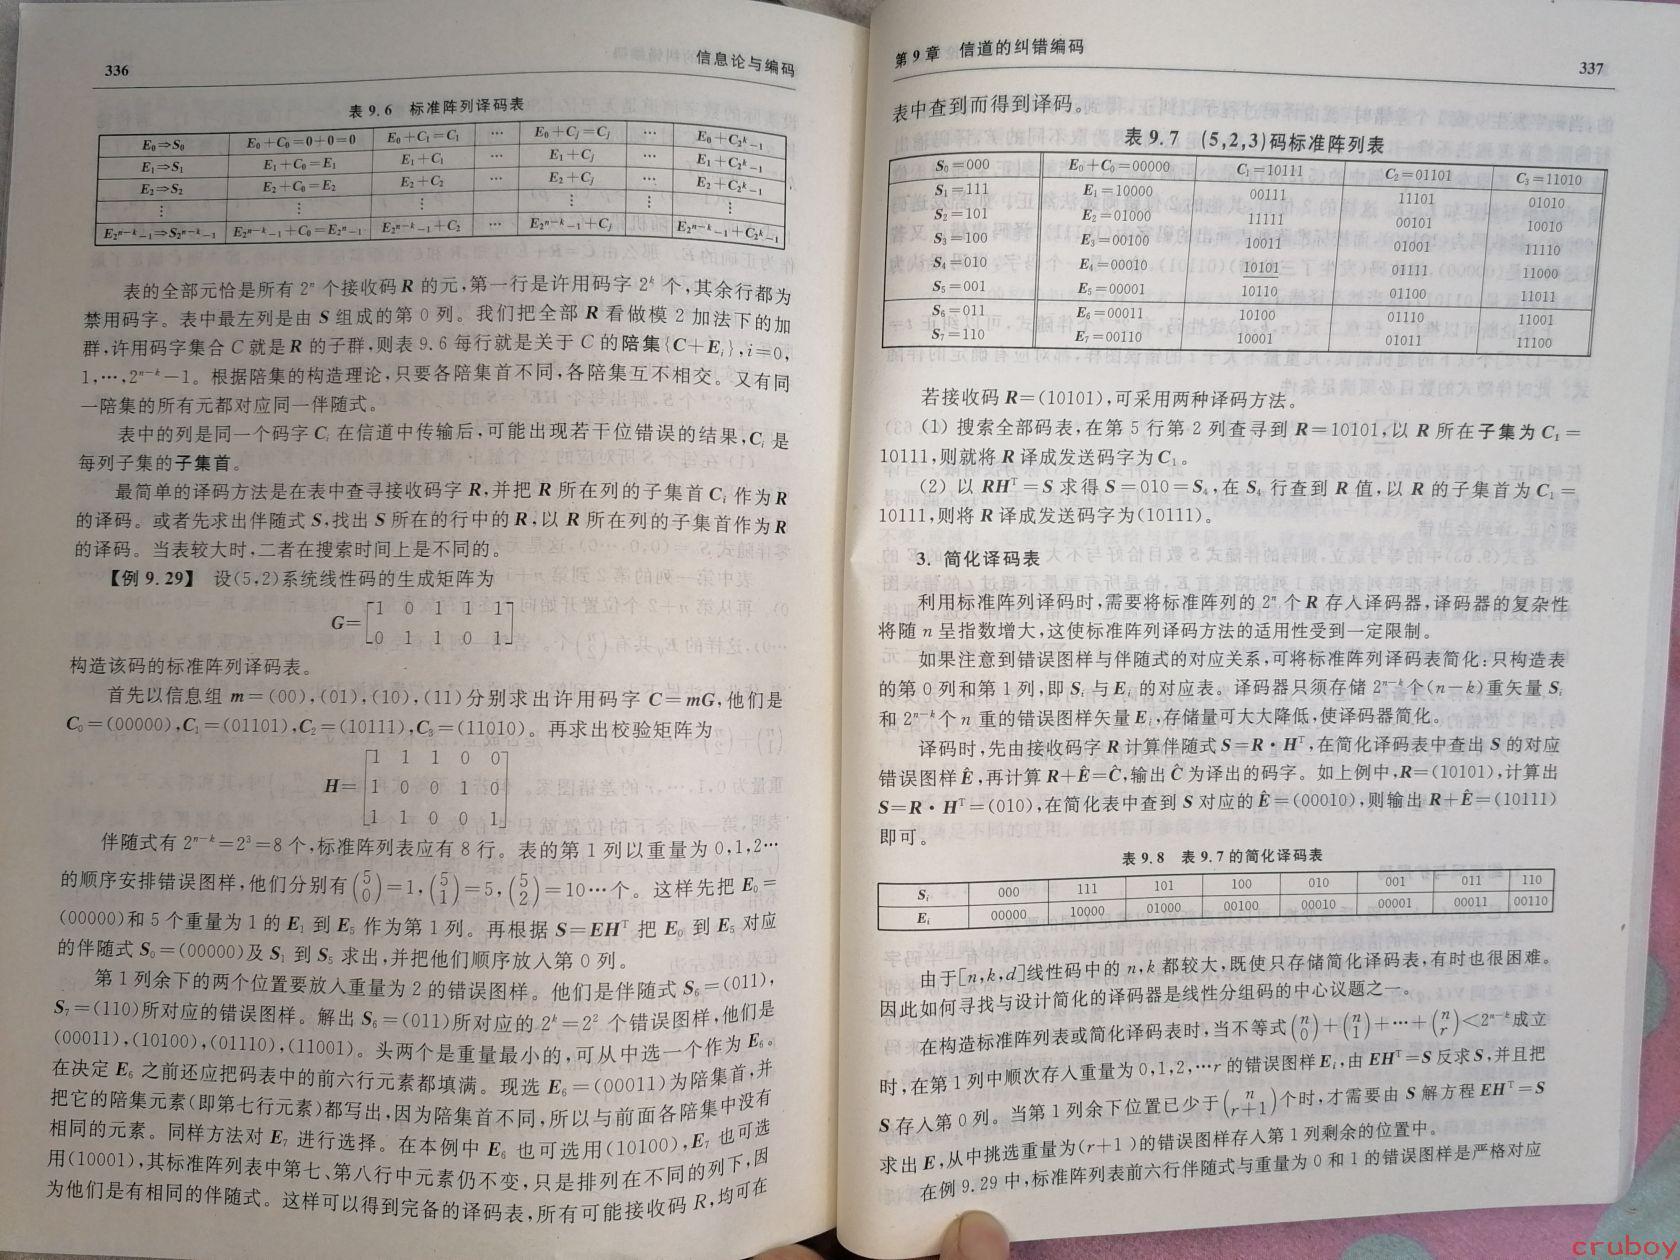 336
信息论与编码
表 9.6 标准阵列译码表
E₀⇒S₀ E₀+C₀=0+0=0 E₀+C₁=C₁ … E₀+Cⱼ=Cⱼ … E₀+C₂ᵏ₋₁
E₁⇒S₁ E₁+C₀=E₁ E₁+C₁ … E₁+Cⱼ … E₁+C₂ᵏ₋₁
E₂⇒S₂ E₂+C₀=E₂ E₂+C₂ … E₂+Cⱼ … E₂+C₂ᵏ₋₁
⋮ ⋮ ⋮ ⋮ ⋮ ⋮ ⋮
E₂ⁿ⁻ᵏ₋₁⇒S₂ⁿ⁻ᵏ₋₁ E₂ⁿ⁻ᵏ₋₁+C₀=E₂ⁿ⁻ᵏ₋₁ E₂ⁿ⁻ᵏ₋₁+C₂ … E₂ⁿ⁻ᵏ₋₁+Cⱼ … E₂ⁿ⁻ᵏ₋₁+C₂ᵏ₋₁
表的全部元恰是所有 2ⁿ 个接收码 R 的元,第一行是许用码字 2ᵏ 个,其余行都为
禁用码字。表中最左列是由 S 组成的第 0 列。我们把全部 R 看做模 2 加法下的加
群,许用码字集合 C 就是 R 的子群,则表 9.6 每行就是关于 C 的陪集{C+Eᵢ},i=0,
1,…,2ⁿ⁻ᵏ−1。根据陪集的构造理论,只要各陪集首不同,各陪集互不相交。又有同
一陪集的所有元都对应同一伴随式。
表中的列是同一个码字 Cᵢ 在信道中传输后,可能出现若干位错误的结果,Cᵢ 是
每列子集的子集首。
最简单的译码方法是在表中查寻接收码字 R,并把 R 所在列的子集首 Cᵢ 作为 R
的译码。或者先求出伴随式 S,找出 S 所在的行中的 R,以 R 所在列的子集首作为 R
的译码。当表较大时,二者在搜索时间上是不同的。
【例 9.29】 设(5,2)系统线性码的生成矩阵为
G=[1 0 1 1 1
0 1 1 0 1]
构造该码的标准阵列译码表。
首先以信息组 m=(00),(01),(10),(11)分别求出许用码字 C=mG,他们是
C₀=(00000),C₁=(01101),C₂=(10111),C₃=(11010)。再求出校验矩阵为
H=[1 1 1 0 0
1 0 0 1 0
1 1 0 0 1]
伴随式有 2ⁿ⁻ᵏ=2³=8 个,标准阵列表应有 8 行。表的第 1 列以重量为 0,1,2…
的顺序安排错误图样,他们分别有(5 0)=1,(5 1)=5,(5 2)=10…个。这样先把 E₀=
(00000)和 5 个重量为 1 的 E₁ 到 E₅ 作为第 1 列。再根据 S=EHᵀ 把 E₀ 到 E₅ 对应
的伴随式 S₀=(00000)及 S₁ 到 S₅ 求出,并把他们顺序放入第 0 列。
第 1 列余下的两个位置要放入重量为 2 的错误图样。他们是伴随式 S₆=(011),
S₇=(110)所对应的错误图样。解出 S₆=(011)所对应的 2ᵏ=2² 个错误图样,他们是
(00011),(10100),(01110),(11001)。头两个是重量最小的,可从中选一个作为 E₆。
在决定 E₆ 之前还应把码表中的前六行元素都填满。现选 E₆=(00011)为陪集首,并
把它的陪集元素(即第七行元素)都写出,因为陪集首不同,所以与前面各陪集中没有
相同的元素。同样方法对 E₇ 进行选择。在本例中 E₆ 也可选用(10100),E₇ 也可选
用(10001),其标准阵列表中第七、第八行中元素仍不变,只是排列在不同的列下,因
为他们是有相同的伴随式。这样可以得到完备的译码表,所有可能接收码 R,均可在
第 9 章 信道的纠错编码
337
表中查到而得到译码。
表 9.7 (5,2,3)码标准阵列表
S₀=000 E₀+C₀=00000 C₁=10111 C₂=01101 C₃=11010
S₁=111 E₁=10000 00111 11101 01010
S₂=101 E₂=01000 11111 00101 10010
S₃=100 E₃=00100 10011 01001 11110
S₄=010 E₄=00010 10101 01111 11000
S₅=001 E₅=00001 10110 01100 11011
S₆=011 E₆=00011 10100 01110 11001
S₇=110 E₇=00110 10001 01011 11100
若接收码 R=(10101),可采用两种译码方法。
(1) 搜索全部码表,在第 5 行第 2 列查寻到 R=10101,以 R 所在子集为 C₁=
10111,则就将 R 译成发送码字为 C₁。
(2) 以 RHᵀ=S 求得 S=010=S₄,在 S₄ 行查到 R 值,以 R 的子集首为 C₁=
10111,则将 R 译成发送码字为(10111)。
3. 简化译码表
利用标准阵列译码时,需要将标准阵列的 2ⁿ 个 R 存入译码器,译码器的复杂性
将随 n 呈指数增大,这使标准阵列译码方法的适用性受到一定限制。
如果注意到错误图样与伴随式的对应关系,可将标准阵列译码表简化:只构造表
的第 0 列和第 1 列,即 Sᵢ 与 Eᵢ 的对应表。译码器只须存储 2ⁿ⁻ᵏ个(n−k)重矢量 Sᵢ
和 2ⁿ⁻ᵏ个 n 重的错误图样矢量 Eᵢ,存储量可大大降低,使译码器简化。
译码时,先由接收码字 R 计算伴随式 S=R·Hᵀ,在简化译码表中查出 S 的对应
错误图样Ê,再计算 R+Ê=Ĉ,输出 Ĉ 为译出的码字。如上例中,R=(10101),计算出
S=R·Hᵀ=(010),在简化表中查到 S 对应的Ê=(00010),则输出 R+Ê=(10111)
即可。
表 9.8 表 9.7 的简化译码表
Sᵢ 000 111 101 100 010 001 011 110
Eᵢ 00000 10000 01000 00100 00010 00001 00011 00110
由于[n,k,d]线性码中的 n,k 都较大,既使只存储简化译码表,有时也很困难。
因此如何寻找与设计简化的译码器是线性分组码的中心议题之一。
在构造标准阵列表或简化译码表时,当不等式(n 0)+(n 1)+…+(n r)<2ⁿ⁻ᵏ成立
时,在第 1 列中顺次存入重量为 0,1,2,…r 的错误图样 Eᵢ,由 EHᵀ=S 反求 S,并且把
S 存入第 0 列。当第 1 列余下位置已少于(n r+1)个时,才需要由 S 解方程 EHᵀ=S
求出 E,从中挑选重量为(r+1)的错误图样存入第 1 列剩余的位置中。
在例 9.29 中,标准阵列表前六行伴随式与重量为 0 和 1 的错误图样是严格对应
cruboy